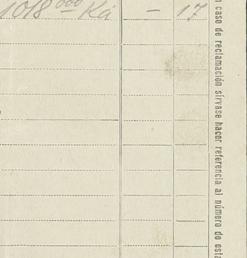 1018 000 Ká — 17
n caso de reclamación sírvase hacer referencia al número de esta